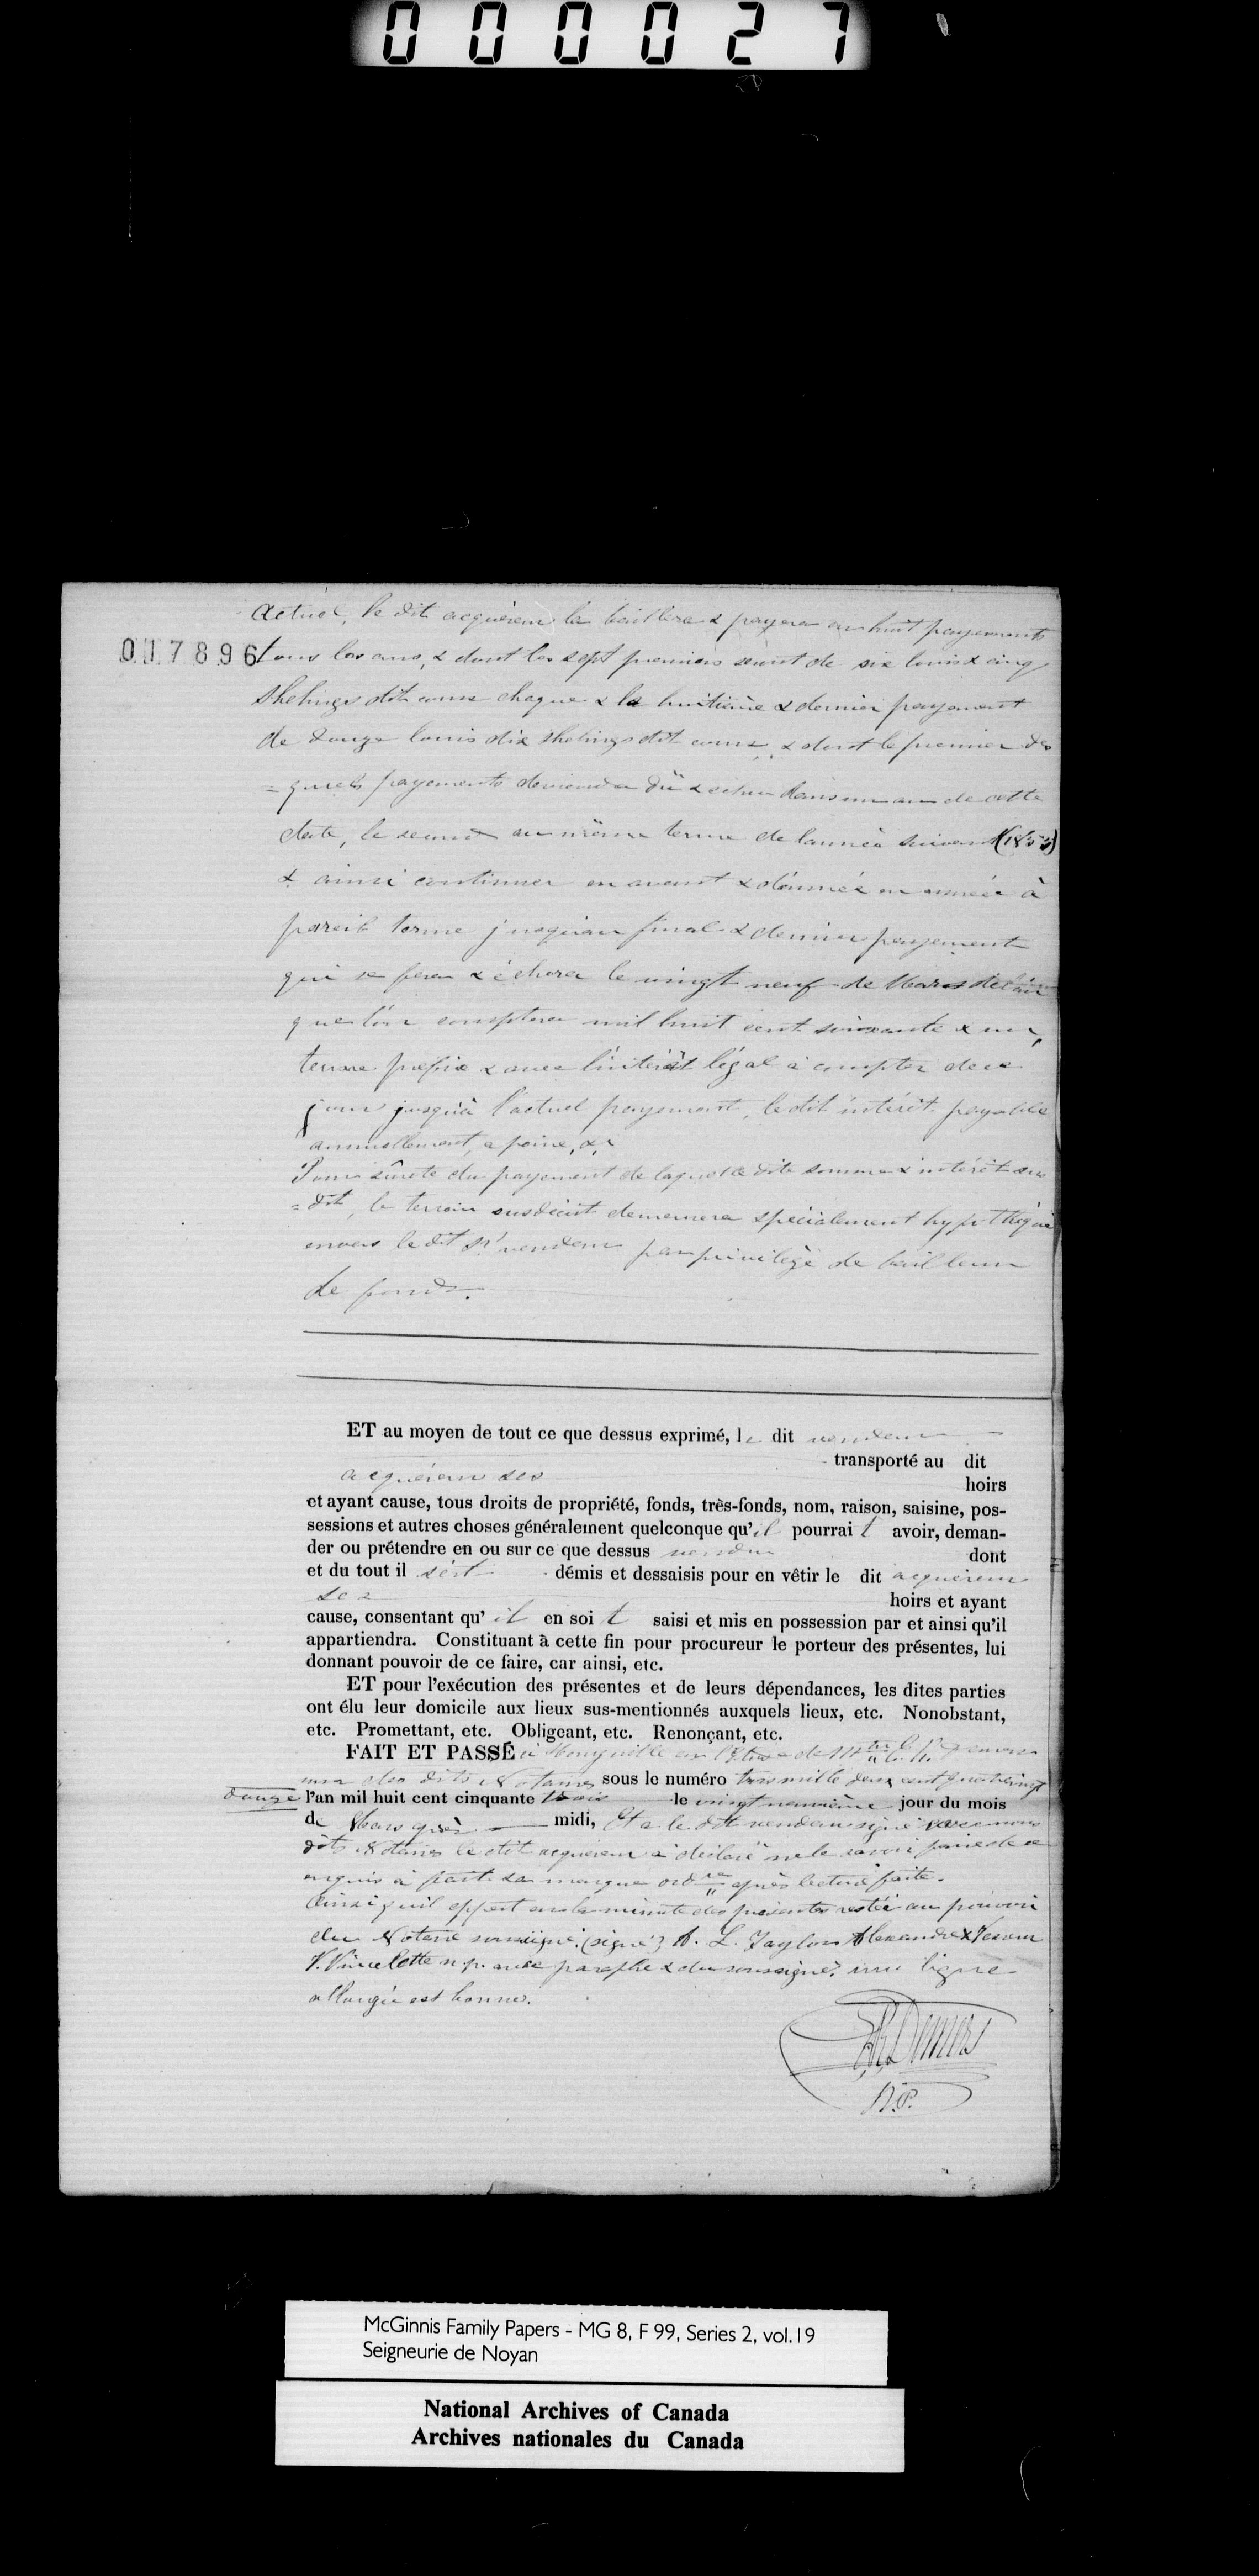 000027
Actuel, le dit acquéreur la baillera & payera en huit payements
017896 tous les ans, & dont les sept premiers seront de six louis & cinq
shelings dit cours chaque & le huitième & dernier payement
de douze louis dix shelings dit cours, & dont le premier des
=quels payements deviendra dû & échu dans un an de cette
date, le second au même terme de l'année suivant (1855)
& ainsi continuer en avant & d'année en année à
pareil terme jusqu'au final & dernier payement
qui se fera & échera le vingt neuf de Mars de l'an
que l'on comptera mil huit cent soixante & un,
terme préfix & avec l'intérêt légal à compter de ce
jour jusqu'à l'actuel payement, le dit intérêt payable
annuellement, a peine, &c
Pour sûreté du payement de laquelle dite somme & intérêt sus
=dit, le terrain susdécrit demeurera spécialement hypothéqué
envers le dit Sr vendeur par privilège de bailleur
de fonds.
ET au moyen de tout ce que dessus exprimé, le dit vendeur
transporté au dit
acquéreur ses
hoirs
et ayant cause, tous droits de propriété, fonds, très-fonds, nom, raison, saisine, pos-
sessions et autres choses généralement quelconque qu'il pourrait avoir, deman-
der ou prétendre en ou sur ce que dessus vendu dont
et du tout il s'est démis et dessaisis pour en vêtir le dit acquéreur
ses hoirs et ayant
cause, consentant qu' il en soit saisi et mis en possession par et ainsi qu'il
appartiendra. Constituant à cette fin pour procureur le porteur des présentes, lui
donnant pouvoir de ce faire, car ainsi, etc.
ET pour l'exécution des présentes et de leurs dépendances, les dites parties
ont élu leur domicile aux lieux sus-mentionnés auxquels lieux, etc. Nonobstant,
etc. Promettant, etc. Obligeant, etc. Renonçant, etc.
FAIT ET PASSÉ à Henryville en l'Etude de Mtre Demers
un des dits Notaires sous le numéro trois mille deux cent quatrevingt
douze l'an mil huit cent cinquante trois le vingt neuvième jour du mois
de Mars après midi, Et a le dit vendeur signé avec nous
dits Notaires le dit acquéreur a déclaré ne le savoir faire de ce
enquis a fait sa marque ordre après lecture faite.
Ainsi qu'il appert en la minute des présentes restée au pouvoir
du Notaire soussigné. (signé) A. L. Taylor Alexandre X
V. Vincelette n.p. avec paraphe & du soussigné. une ligne
allongée est bonne.
Demers
N.P.
McGinnis Family Papers - MG 8, F 99, Series 2, vol.19
Seigneurie de Noyan
National Archives of Canada
Archives nationales du Canada